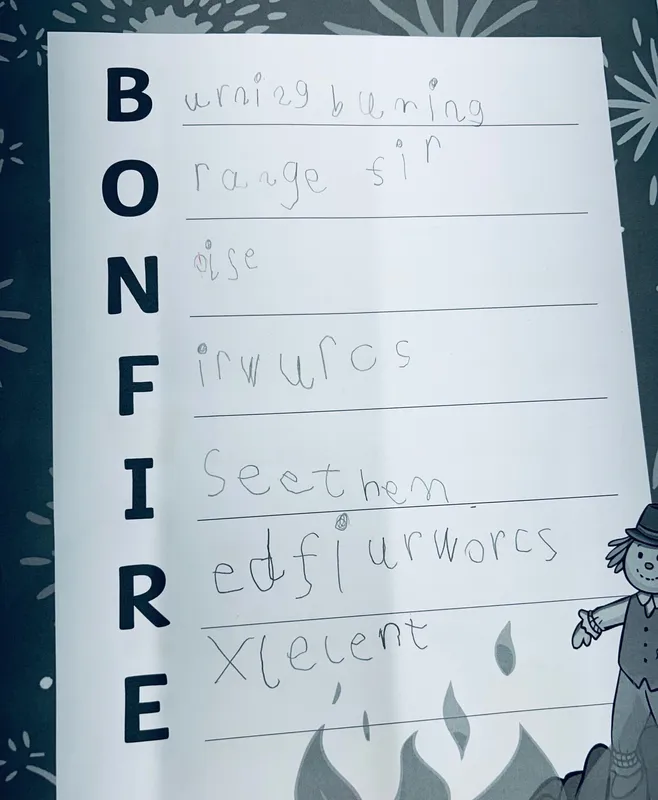 B urning burning
O range fir
N oise
F irwurcs
I Seethem
R edfiurworcs
E Xlelent